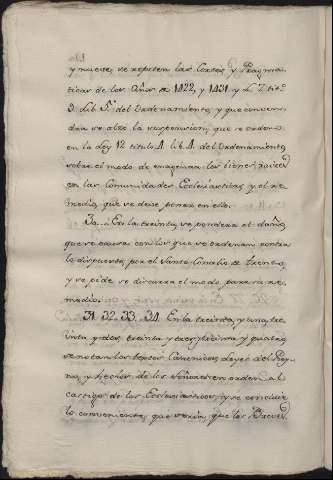 y nueve, se repiten las Cortes, y Pragma
ticas de los Años de 1422, y 1431 y L. 2 tit.
9 Lib. 5.º del Ordenamiento, y que conven
dra se alze la suspension, que se ordenó
en la ley 12 titulo 4 lib. 4 del Ordenamiento
sobre el modo de enagenar los bienes raices
en las Comunidades Eclesiasticas, y el re
medio, que se deve poner en ello.
30.. En la treinta, se pondera el daño,
que se causa con los que se ordenan contra
lo dispuesto por el Santo Concilio de Trento,
y se pide se discurra el modo, para su re
medio.
31. 32. 33. 34. En la treinta, y una, tre
inta y dos, treinta y tres, y treinta y quatro,
se notan los textos Canonicos, Leyes del Rey
no, y hechos de los Señores en orden al
castigo de los Eclesiasticos, y se concluie
lo conveniente, que seria, que los Brebes